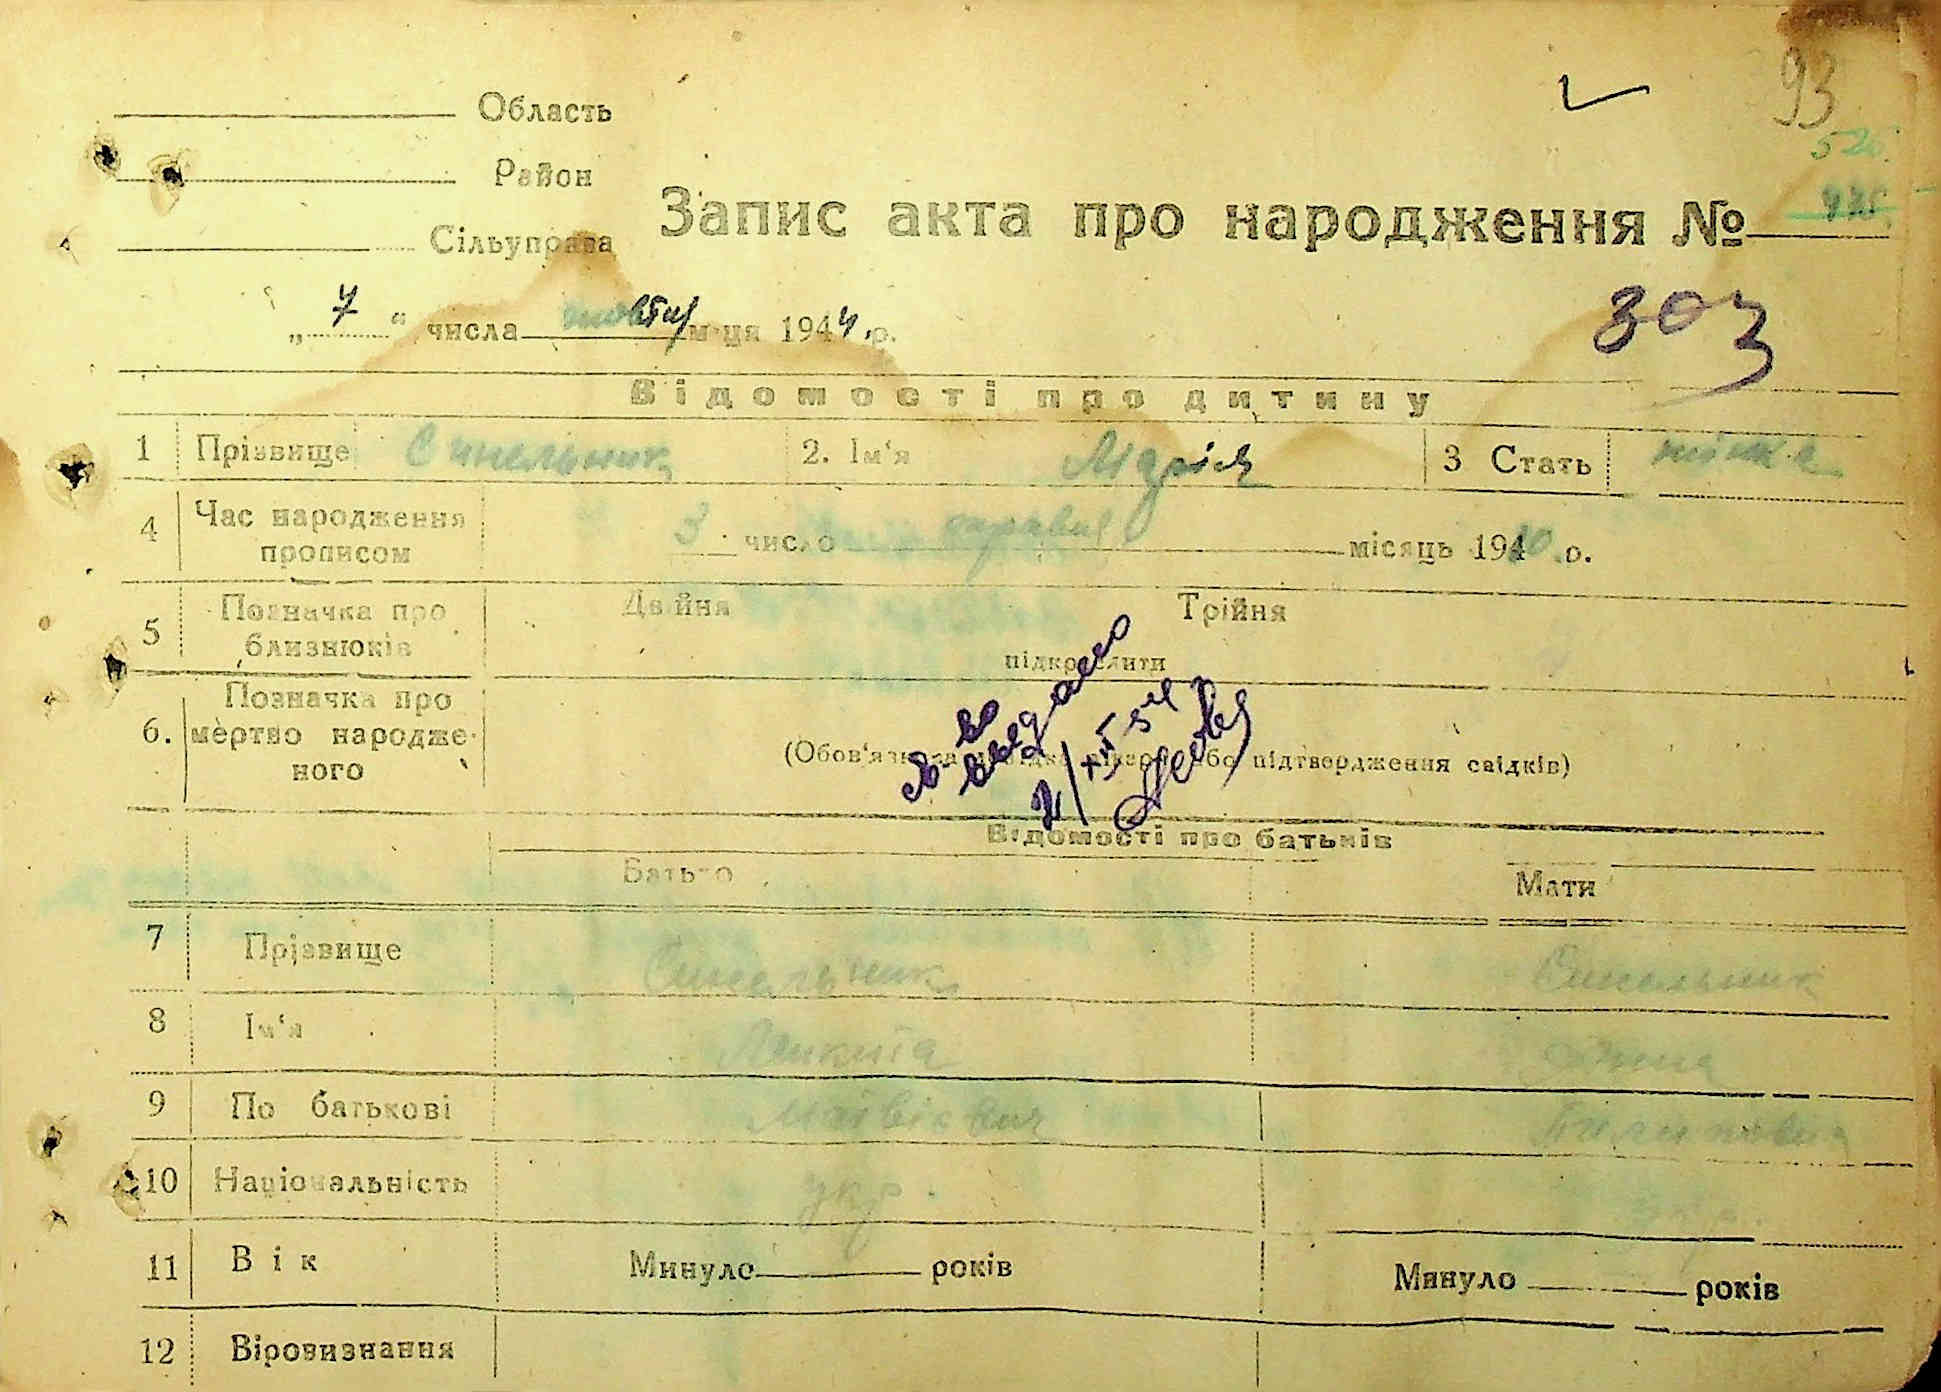 93
Область
526.
Район
Запис акта про народження №
Сільуправа
„ 7 “ числа жовтня м-ця 1944 р.
303
Відомості про дитину
1 Прізвище Синельник 2. Ім'я Марія 3 Стать жінка
4 Час народження прописом 3 число травня місяць 1940 р.
5 Позначка про близнюків Двійня Трійня
підкреслити
6. Позначка про мертво народженого
(Обов'язкова довідка лікаря або підтвердження свідків)
св-во выдано
2/XII 54
Відомості про батьків
Батько Мати
7 Прізвище Синельник Синельник
8 Ім'я Микита Анна
9 По батькові Матвієвич Пилиповна
10 Національність укр. укр.
11 Вік Минуло років Минуло років
12 Віровизнання